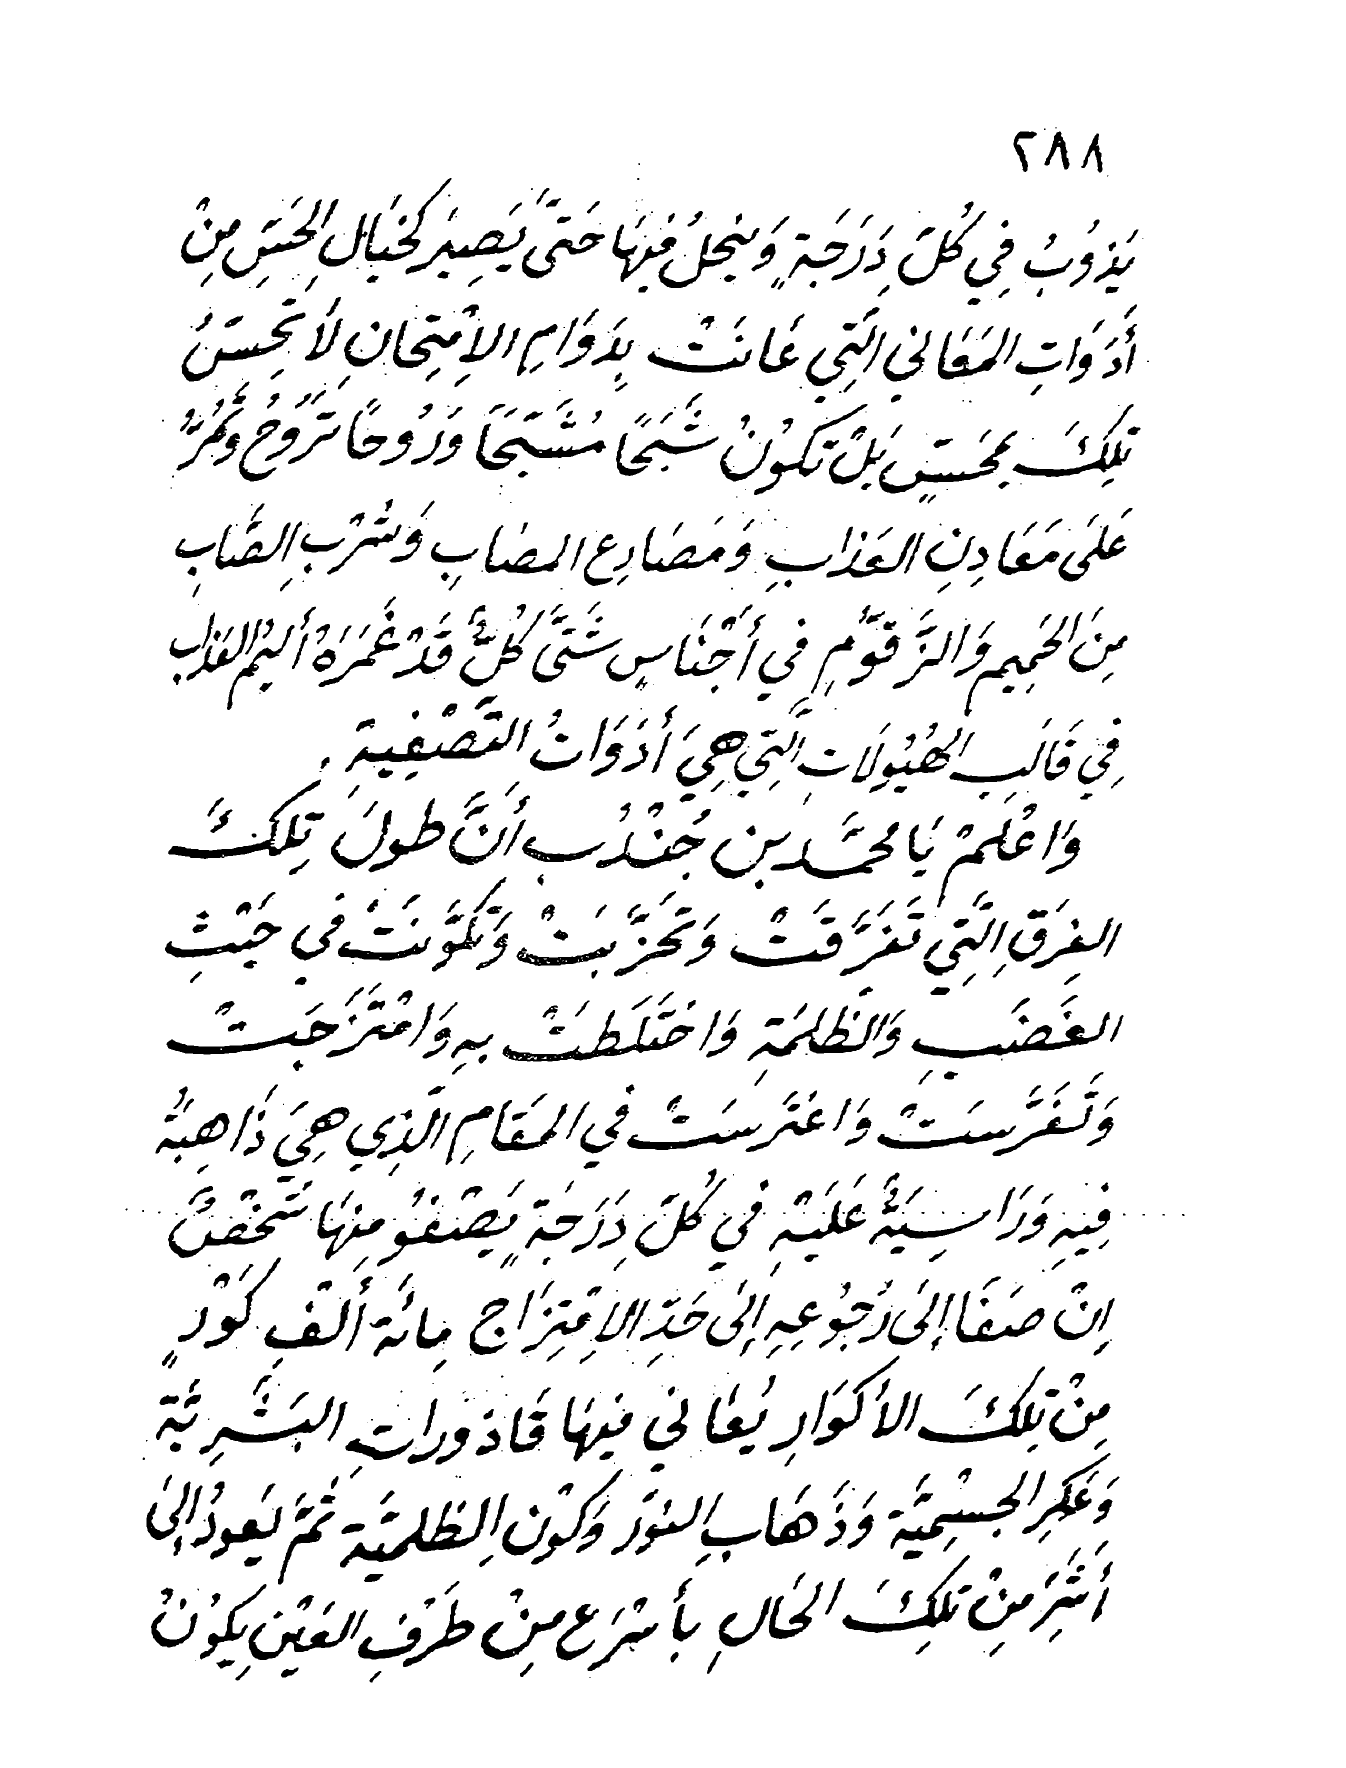 ٢٨٨
يَذُوبُ فِي كُلِّ دَرَجَةٍ وَيَنْحَلُ فِيهَا حَتَّى يَصِيرَ كَخَيَالِ الحَسِّ مِنْ
أَدَوَاتِ المَعَانِي الَّتِي عَانَتْ بِدَوَامِ الاِمْتِحَانِ لاَ تُحِسُّ
تِلْكَ بِمَحَسٍّ بَلْ تَكُونُ شَبَحًا مُشَبَّحًا وَرُوحًا تَرُوحُ وَتَمُرُّ
عَلَى مَعَادِنِ العَذَابِ وَمَصَارِعِ المصَابِ وَشُرْبِ الصَّابِ
مِنَ الحَمِيمِ وَالزَّقُّومِ فِي أَجْنَاسٍ شَتَّى كُلٌّ قَدْ غَمَرَهُ أليمُ العَذابِ
فِي قَالَبِ الهُيُولَاتِ الَّتِي هِيَ أَدَوَاتُ التَّصْفِيَةِ .
وَاعْلَمْ يَا مُحَمَّد بن جُنْدُب أَنَّ طولَ تِلكَ
الفِرَقِ الَّتِي تَفَرَّقَتْ وَتَحَزَّبَتْ وَتَكَوَّنَتْ فِي حَيْثِ
الغَضَبِ وَالظُلمَةِ وَاخْتَلَطَتْ بِهِ وَامْتَزَجَتْ
وَتَفَرَّسَتْ وَاعْتَرَسَتْ فِي المَقَامِ الَّذِي هِيَ ذَاهِبَةٌ
فِيهِ وَرَاسِيَةٌ عَلَيْهِ فِي كُلِّ دَرَجَةٍ يَصْفُو مِنهَا شَخْصٌ
إِنْ صَفَا إِلَى رُجُوعِهِ إِلَى حَدِّ الاِمْتِزَاجِ مِائَة أَلْفِ كَوْرٍ
مِنْ تِلكَ الأَكوَارِ يُعَانِي فِيهَا قَاذورَاتِ البَشَرِيَّة
وَعَكَرِ الجِسْمِيَّة وَذَهَابِ النورَ وَكَوْنِ الظُلمَيَّة ثُمَّ يَعُودُ إِلَى
أَشَرِّ مِنْ تِلكَ الحَالِ بأَسْرَع مِنْ طَرْفِ العَيْنِ يَكُونُ